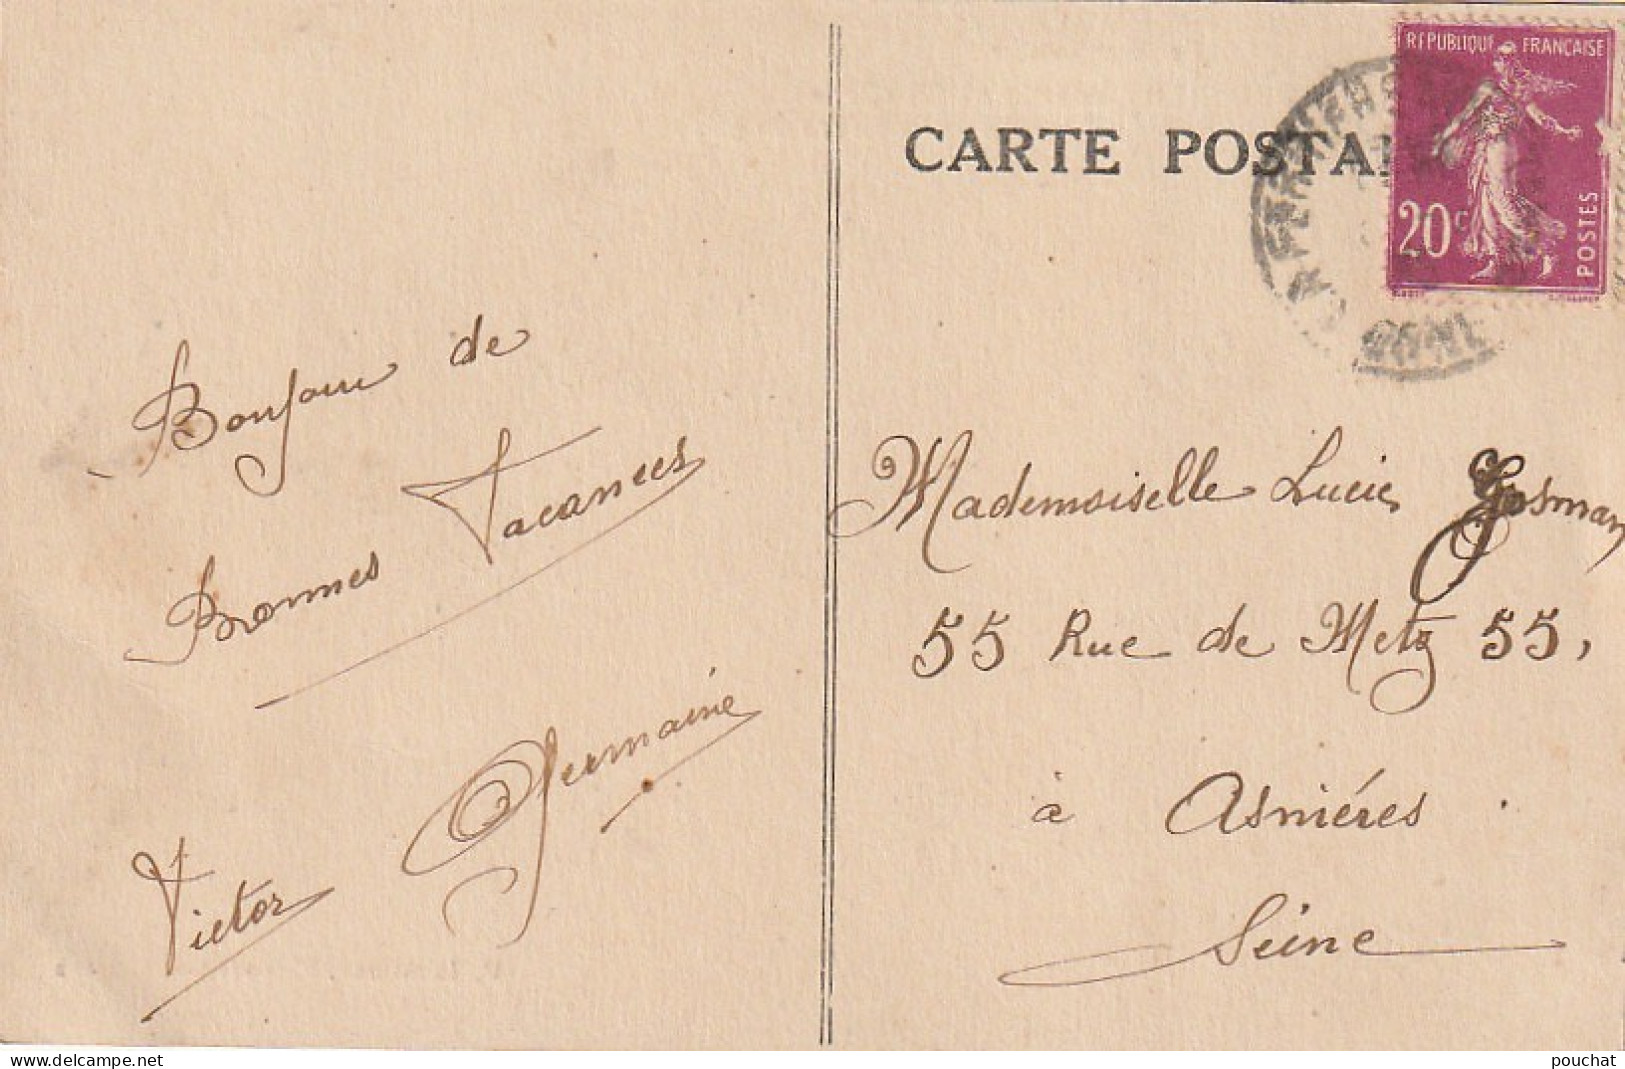 CARTE POSTA
REPUBLIQUE FRANÇAISE
20c
POSTES
Bonjour de
Bonnes Vacances
Germaine
Victor
Mademoiselle Lucie Gosman
55 Rue de Metz 55,
à Asniéres
Seine
www.delcampe.net
pouchat